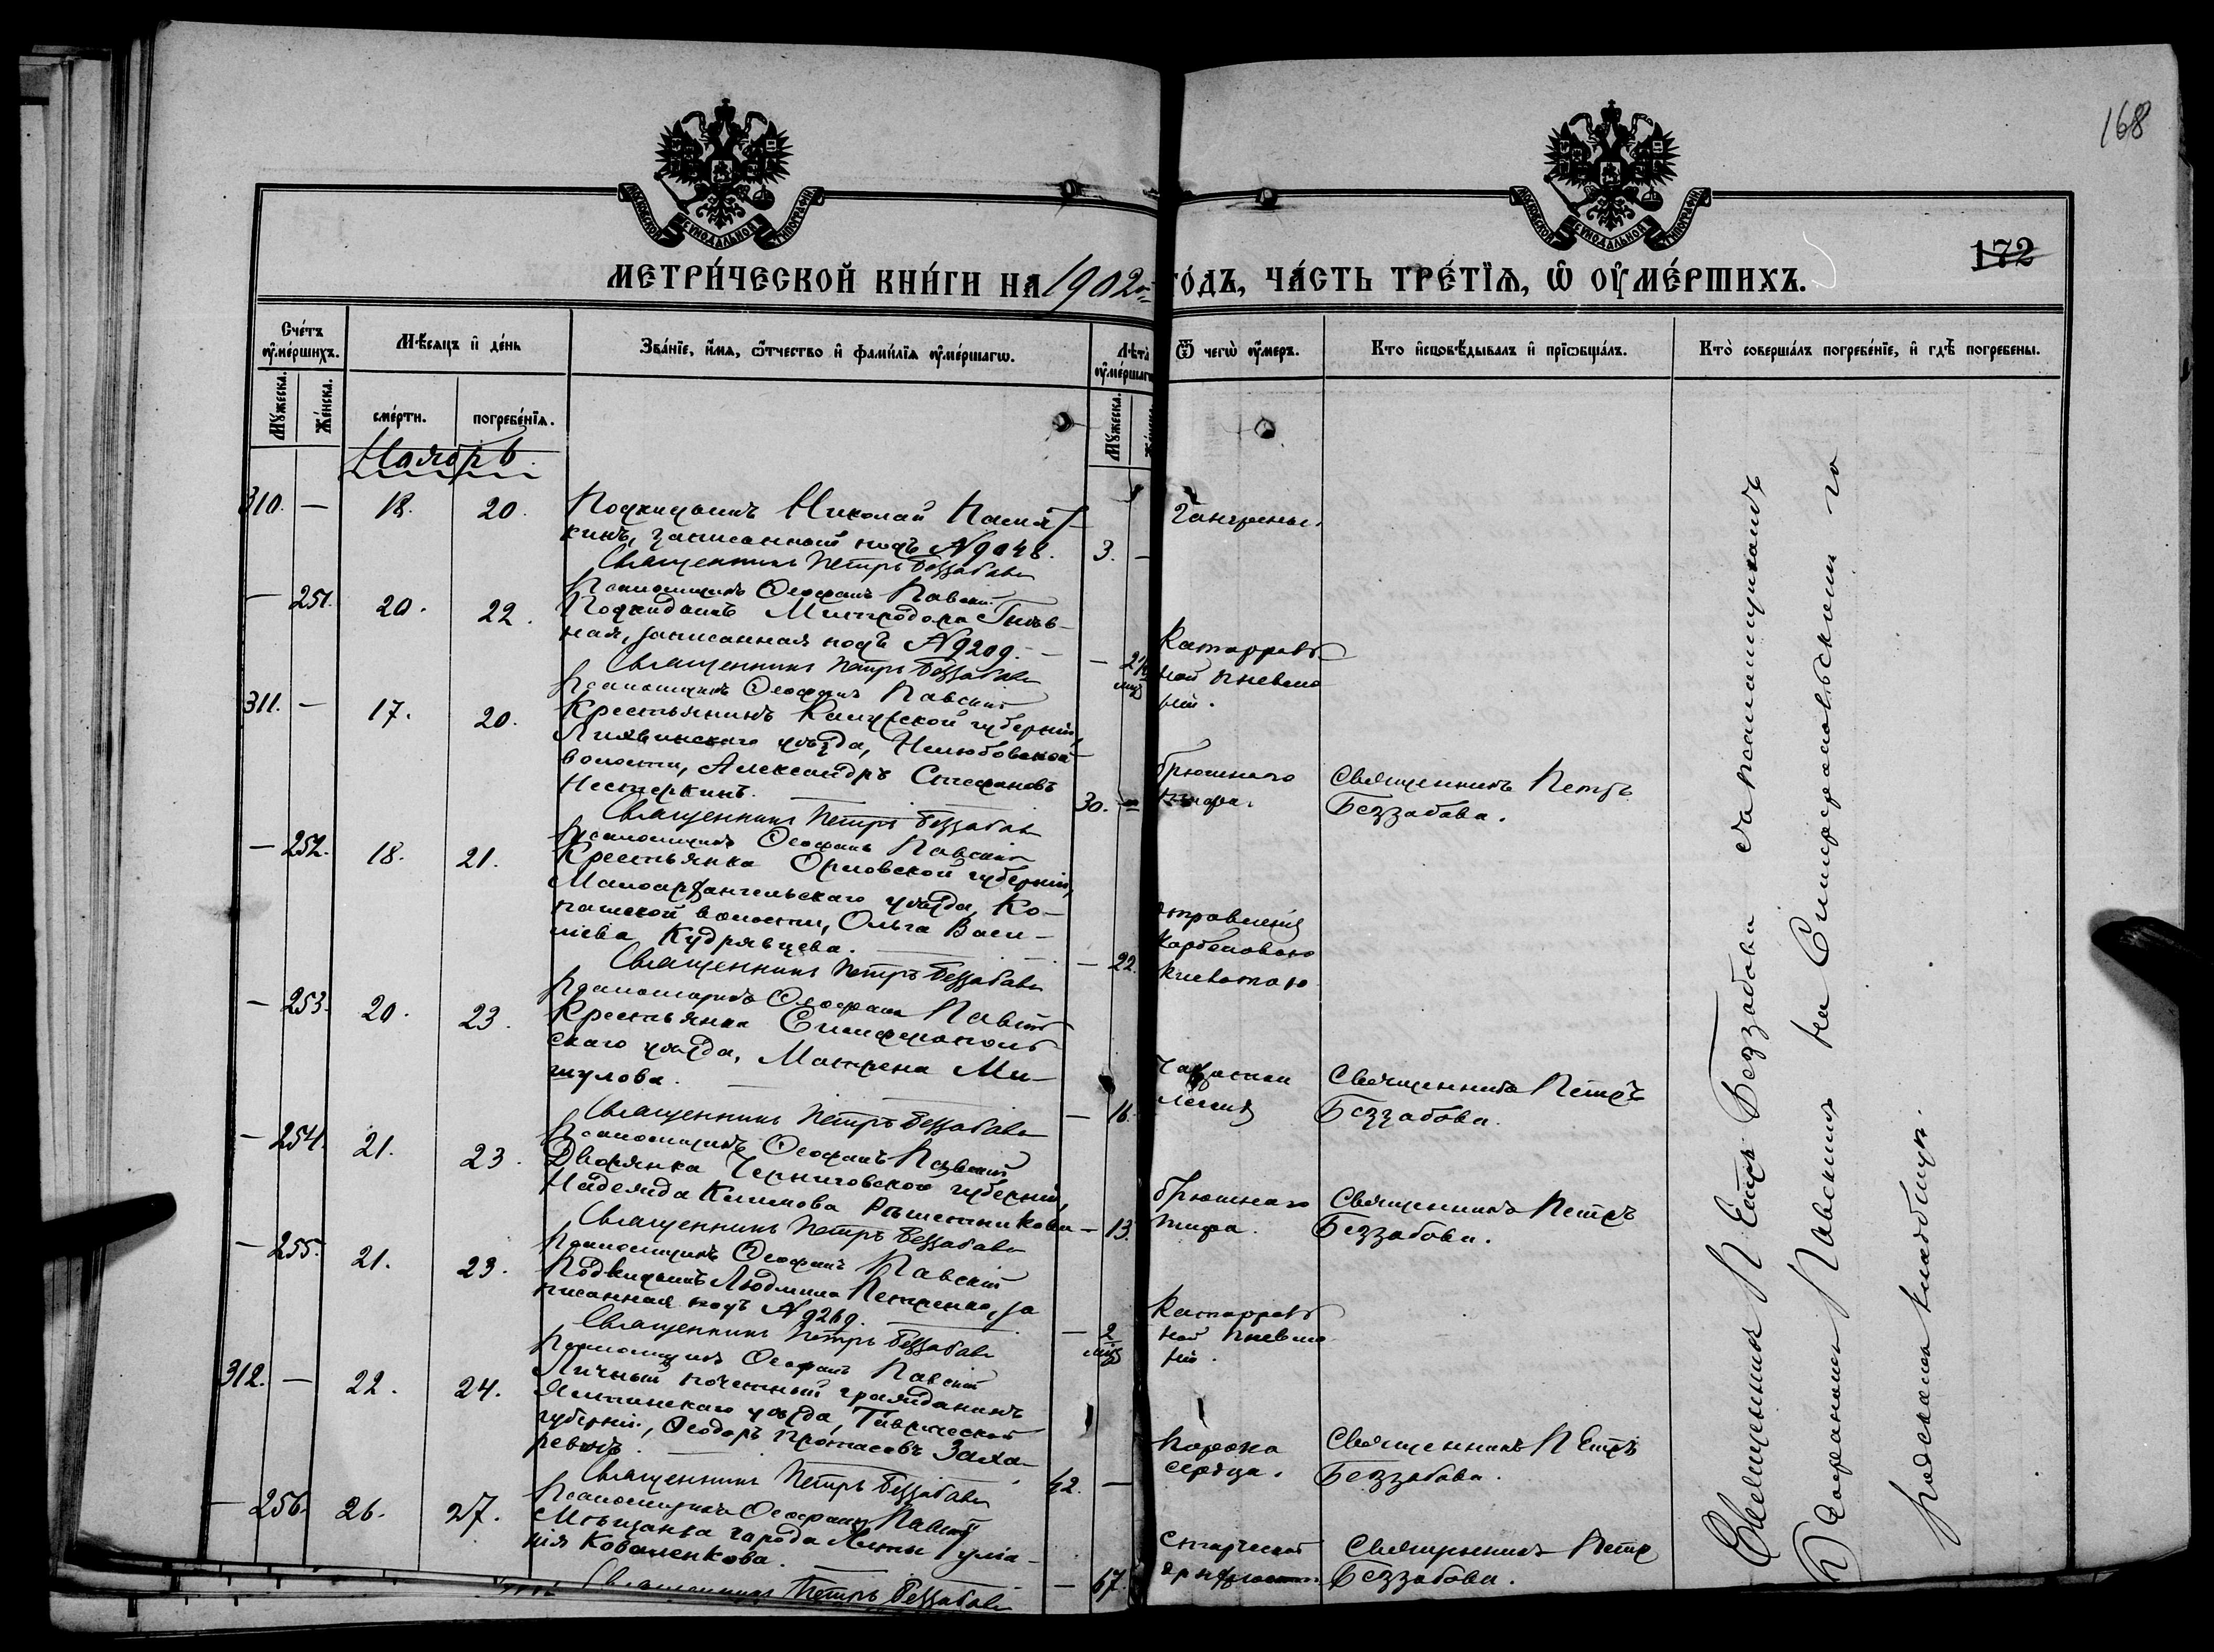 168
172
МОСКОВСКОЙ СУНОДАЛЬНОЙ ТИПОГРАФІИ
МОСКОВСКОЙ СУНОДАЛЬНОЙ ТИПОГРАФІИ
МЕТРИ́ЧЕСКОЙ КНИ́ГИ НА 1902 ГО́ДЪ, ЧА́СТЬ ТРЕ́ТЇѦ, Ѡ҆ ОУ҆МЕ́РШИХЪ.
Сче́тъ оу҆ме́ршихъ.
Мꙋ́жеска.
Же́нска.
Мѣ́сѧцъ и҆ де́нь
сме́рти.
погребе́нїѧ.
Зва́нїе, и҆́мѧ, ѻ҆́тчество и҆ фами́лїѧ оу҆ме́ршагѡ.
Лѣ́та оу҆ме́ршагѡ
Мꙋ́жеска.
Ѿ чегѡ̀ оу҆́меръ.
Кто̀ и҆сповѣ́дывалъ и҆ прїѡбща́лъ.
Кто̀ соверша́лъ погребе́нїе, и҆ гдѣ̀ погребены.
Ноябрь.
310. — 18. 20. Подкидышъ Николай
кинъ, записанный подъ № 9048. 3. — Гангрены.
Священникъ Петръ Беззабава
Псаломщикъ Ѳеофанъ Павскій
— 251. 20. 22. Подкидышъ Митродора Гнѣв-
ная, записанная подъ № 9209. —
Катарраль
ной пневмо
ніи.
Священникъ Петръ Беззабава
Псаломщикъ Ѳеофанъ Павскій
311. — 17. 20. Крестьянинъ Калужской губерніи,
Лихвинскаго уѣзда,
волости, Александръ Стефановъ
Нестеркинъ. 30. —
брюшного
тифа.
Священникъ Петръ
Беззабава.
Священникъ Петръ Беззабава
Псаломщикъ Ѳеофанъ Павскій
— 252. 18. 21. Крестьянка Орловской губерніи,
Малоархангельскаго уѣзда, Ко-
волости, Ольга Васи-
ліева Кудрявцева. — 22.
отравленія
карболовою
кислотою
Священникъ Петръ Беззабава
Псаломщикъ Ѳеофанъ Павскій
— 253. 20. 23. Крестьянка Симферополь
скаго уѣзда, Матрена Ми-
шулова. — 16.
Чахотки
легкихъ
Священникъ Петръ
Беззабава.
Священникъ Петръ Беззабава
Псаломщикъ Ѳеофанъ Павскій
— 254. 21. 23. Дворянка Черниговской губерніи,
Надежда Климова Рѣшетникова — 13.
брюшнаго
тифа.
Священникъ Петръ
Беззабава.
Священникъ Петръ Беззабава
Псаломщикъ Ѳеофанъ Павскій
— 255. 21. 23. Подкидышъ Людмила Петренко, за
писанная подъ № 9269. — 2 мѣс
Катарраль
ной пневмо
ніи.
Священникъ Петръ Беззабава
Псаломщикъ Ѳеофанъ Павскій
312. — 22. 24. Личный почетный гражданинъ
Ялтинскаго уѣзда, Таврической
губерніи, Ѳеодоръ Протасовъ Заха-
ревичъ. 42. —
порока
сердца.
Священникъ Петръ
Беззабава.
Священникъ Петръ Беззабава
Псаломщикъ Ѳеофанъ Павскій
— 256. 26. 27. Мѣщанка города Ялты Іуліа-
нія Коваленкова. — 67.
Старческой
дряхлости
Священникъ Петръ
Беззабава.
Священникъ Петръ Беззабава
Священникъ Петръ Беззабава съ псаломщикомъ
Ѳеофаномъ Павскимъ на Симферопольскомъ го
родскомъ кладбищѣ.